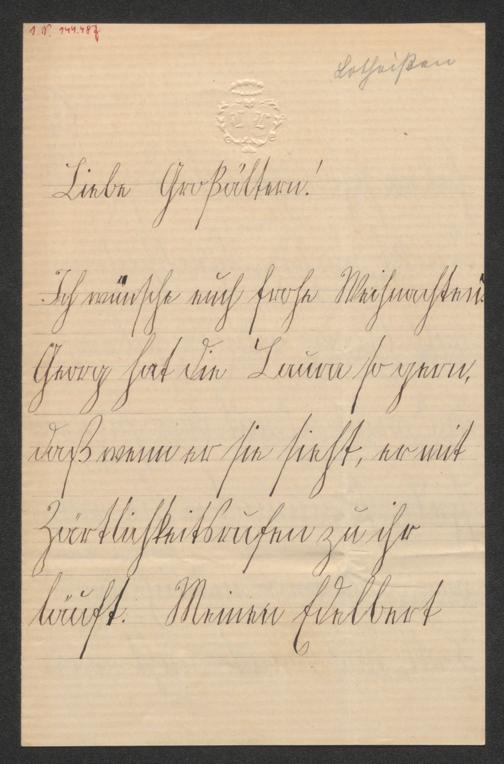 I. N. 144.487
Lotheißen
Liebe Großältern!
Ich wünsche euch frohe Weihnachten.
Georg hat die Laura so gern,
daß wenn er sie sieht, er mit
Zärtlichkeitsrufen zu ihr
läuft. Meinen Edelbert